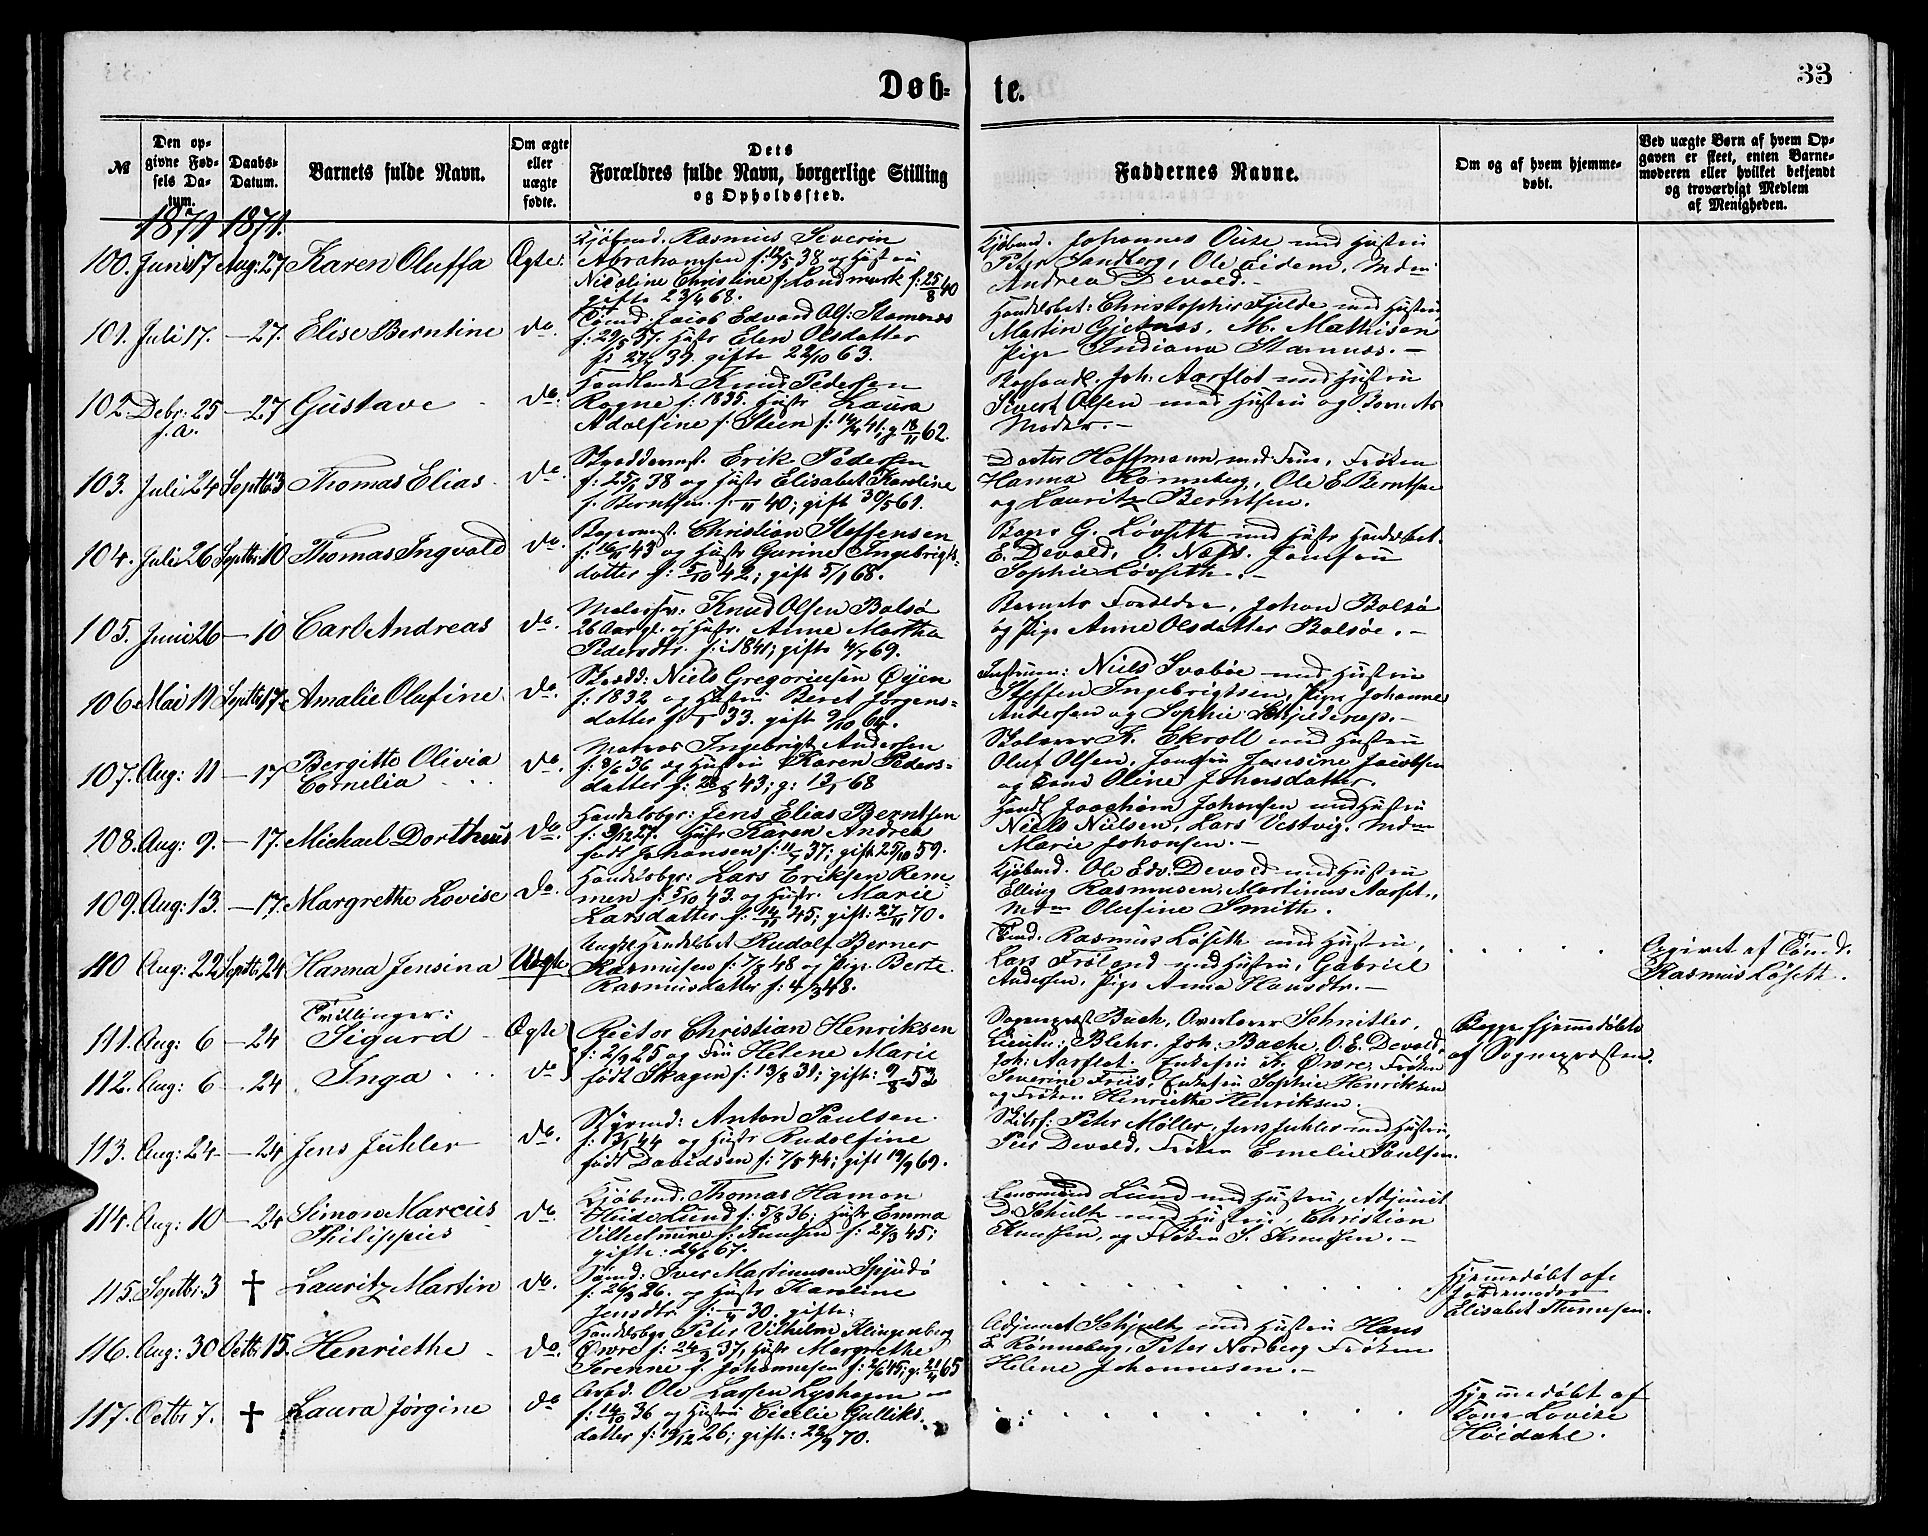 Døbte.
33
№
Den opgivne Fødsels Datum.
Daabs-Datum.
Barnets fulde Navn.
Om ægte eller uægte fødte.
Dets Forældres fulde Navn, borgerlige Stilling og Opholdssted.
Faddernes Navne.
Om og af hvem hjemmedøbt.
Ved uægte Børn af hvem Opgaven er skeet, enten Barnemoderen eller hvilket bekjendt og troværdigt Medlem af Menigheden.
1871 1871.
100. Juni 17 Aug: 27 Karen Oluffa Ægte:
Kjøbmd. Rasmus Severin
Abrahamsen f: 12/5 38 og Hustru
Nicoline Christine f: Landmark f: 25/8 40
gifte 23/4 68.
Kjøbmd. Johannes Ouse med Hustru
Peter Sandberg, Ole Eidem, Mdm
Andrea Devold.
101. Juli 17. — 27. Elise Berntine do.
Jacob Edvard Ols: Stamnes
Hustr Elen Olsdatter
gifte 22/10 63.
Handelsbet: Christopher Fjelde med Hustru
Martin Gjetnæs, M. Mathisen
Pige Indiana Stamnæs. —
102. Debr: 25 f.a. — 27 Gustave do.
Handlende Knud Pedersen
Rogne f: 1835. Hustr Laura
Adolfine f. Steen f: 14/4 41; g 18/11 62.
Boghandl. Joh: Aarflot med Hustru
Sivert Olsen med Hustru og Barnets
Moder. —
103. Juli 24 Septbr 3 Thomas Elias do.
Erik Pedersen
og Hustr Elisabet Karoline
f. Berntsen. gift 30/5 61.
Doctor Hoffmann med Frue, Frøken
Hanna Rønneberg, Ole E. Berntsen
og Lauritz Berntsen.
104. Juli 26 Septbr: 10 Thomas Ingvald do.
Christian Steffensen
og Hustr Gurine Ingebrigts-
datter f: 5/10 42; gift 5/1 68.
Bager G. Løvseth med Hustr Handelsbet.
E. Devold, O. Næss. Jomfru
Sophie Løvseth. —
105. Juni 26 — 10 Carl Andreas do.
Malersv: Knud Olsen Bolsø
26 Aar gl. og Hustr. Anne Martha
Pedersdtr. f: 1841; gifte 4/7 69.
Barnets Forældre, Johan Bolsø
og Pige Anne Olsdatter Bolsøe. —
106. Mai 11 Septbr 17. Amalie Olufine do.
Skrædd: Niels Gregoriusen Øyen
f: 1832 og Hustru Beret Jørgens-
datter
Niels Svabøe med Hustru
Steffen Ingebrigtsen, Pige Johanne
Andersen og Sophie Schjelderup. —
107. Aug: 11 — 17 Bergitte Olivia
Cornelia do.
Matros Ingebrigt Andersen
f: 8/6 36 og Hustru Karen Peders-
datter
Skolærer K. Ekroll med Hustru
Oluf Olsen, Jomfru Jensine Jacobsen
og Oline Johnsdatter.
108. Aug: 9. — 17. Michael Dorthius do.
Handelsbgr: Jens Elias Berntsen
Hustr Karen Andrea
født Johansen f: 11/7 37; gift 25/10 59.
Handl Joachim Johansen med Hustru
Niels Nielsen, Lars Vestvig, Mdm
Marie Johansen. —
109. Aug: 13. — 17. Margrethe Lovise do.
Handelsbgr: Lars Eriksen Rem-
men f: 5/10 43 og Hustr. Marie
Larsdatter f: 14/11 45; gift: 27/11 70.
Kjøbmd. Ole Edv. Devold med Hustru
Elling Rasmusen, Martinus Aarset,
Mdm Olufine Smith.
110 Aug: 22 Septbr 24 Hanna Jensina Uægte
Ungkl Handelsbet Rudolf Berner
Rasmusen f: 7/8 48 og Pige Berte
Rasmusdatter f: 4/3 48.
Tømd. Rasmus Løseth med Hustru,
Lars Frøland med Hustru, Gabriel
Andersen, Pige Anna Hansdtr. —
Opgivet af Tømd.
Rasmus Løseth.
Tvillinger:
111. Aug: 6 — 24 Sigurd Ægte
112. Aug: 6 — 24 Inga do
Rector Christian Henriksen
f: 2/9 25 og Fru Helene Marie
født Skagen f: 13/8 31; gift: 9/8 53
Sogneprest Buch, Overlærer Schnitler,
Blehr. Joh: Backe, O. E. Devold,
Joh: Aarflot. Enkefru K. Øwre, Frøken
Severine Friis, Enkefru Sophie Henriksen
og Frøken Henriethe Henriksen.
Begge hjemmedøbte
af Sognepræsten.
113. Aug: 24 — 24 Jens Juhler do.
Styrmd: Anton Paulsen
og Hustr Rudolfine
født Davidsen f: 7/5 44; gift 19/9 69.
Peter Møller, Jens Juhler med Hustru,
Peer Devold, Frøken Emelie Paulsen.
114. Aug: 10 — 24 Simon Marcus
Philippus do.
Kjøbmd. Thomas Hamon
Heide Lund f: 5/8 36; Hustr Emma
Vilhelmine f: Knudsen f: 27/3 45;
Lund med Hustru, Adjunct
D. Schult med Hustru, Christian
Knudsen, og Frøken S. Knudsen. —
115. Septbr: 3 † Lauritz Martin do.
Iver Martinusen
og Hustr Karoline
Jensdtr. gifte:
Hjemmedøbt af
Jordemoder
Elisabet Thomesen.
116. Aug: 30 Octbr 15. Henriethe do.
Handelsbgr. Peter Vilhelm Klingenberg
Øwre f: 24/3 37, Hustr Margrethe
Serenne f. Johannesen
Adjunct Schjult med Hustru Hans
E. Rønneberg, Peter Norberg Frøken
Helene Johannesen. —
117. Octbr 7. † Laura Jørgine do
Arbd. Ole Larsen
f: 14/10 36 og Hustru Cecilie Gulliks-
datter f: 19/12 26; gift: 22/9 70.
Hjemmedøbt af
Kone Lovise
Høidahl.